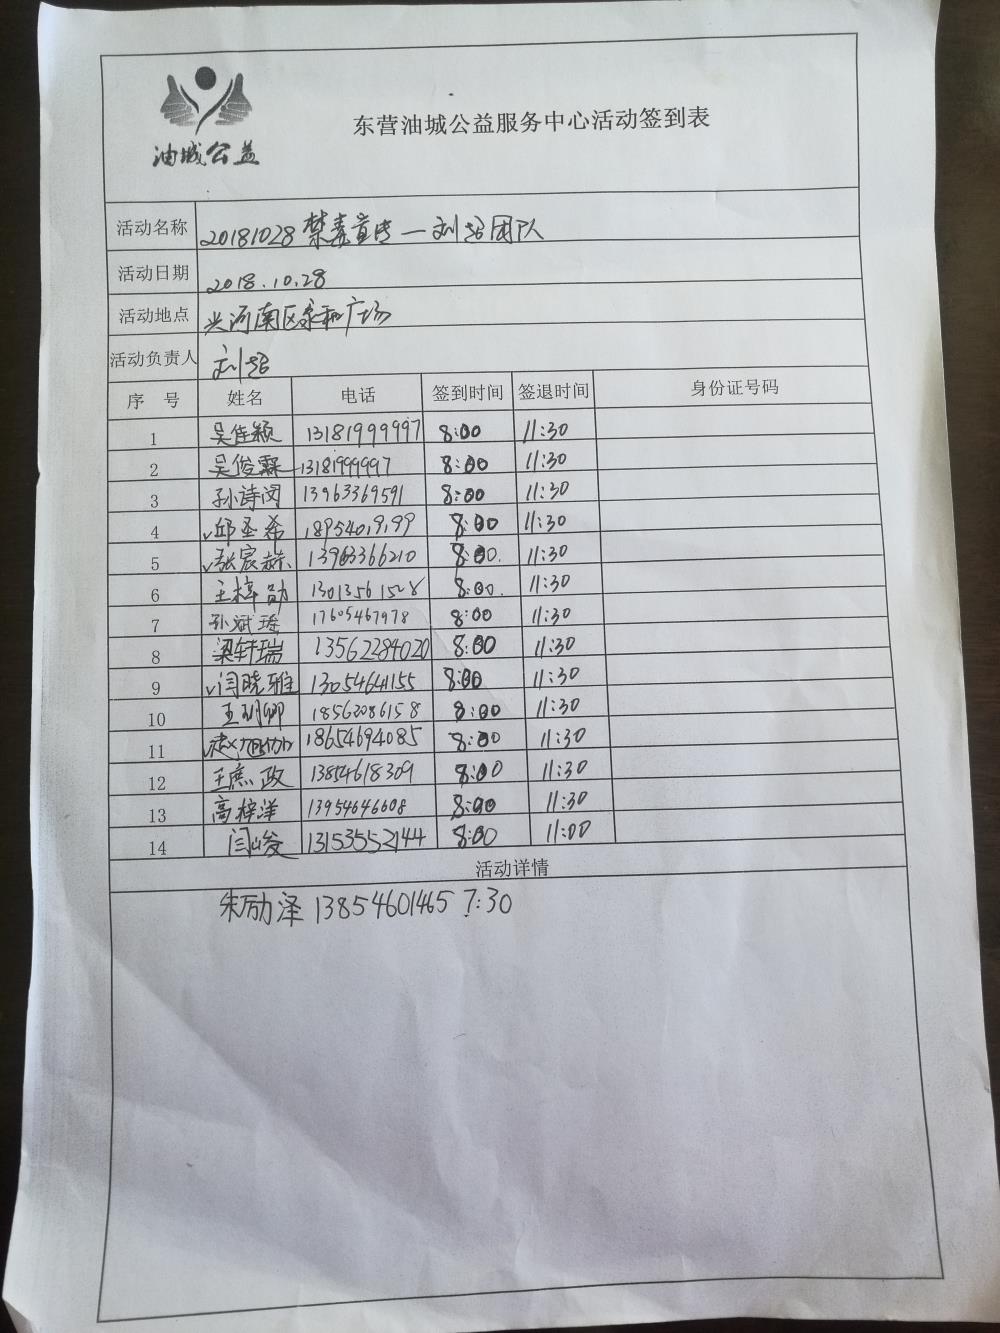 油城公益
东营油城公益服务中心活动签到表
活动名称 20181028禁毒宣传—刘超团队
活动日期 2018.10.28
活动地点 兴河南区永和广场
活动负责人 刘超
序 号 姓名 电话 签到时间 签退时间 身份证号码
1 吴佳颖 13181999997 8:00 11:30
2 吴俊霖 13181999997 8:00 11:30
3 孙诗闵 13963369591 8:00 11:30
4 √邱圣希 18954019199 8:00 11:30
5 √张宸赫 13963366210 8:00 11:30
6 王梓勋 13013561508 8:00 11:30
7 孙斌瑶 17605467978 8:00 11:30
8 梁轩瑞 13562284020 8:00 11:30
9 √闫晓雅 13054641155 8:00 11:30
10 王玥卿 18562086158 8:00 11:30
11 18654694085 8:00 11:30
12 王 政 13854618309 8:00 11:30
13 高梓洋 13954646608 8:00 11:30
14 闫峻 13153552144 8:00 11:00
活动详情
朱励泽 13854601465 7:30